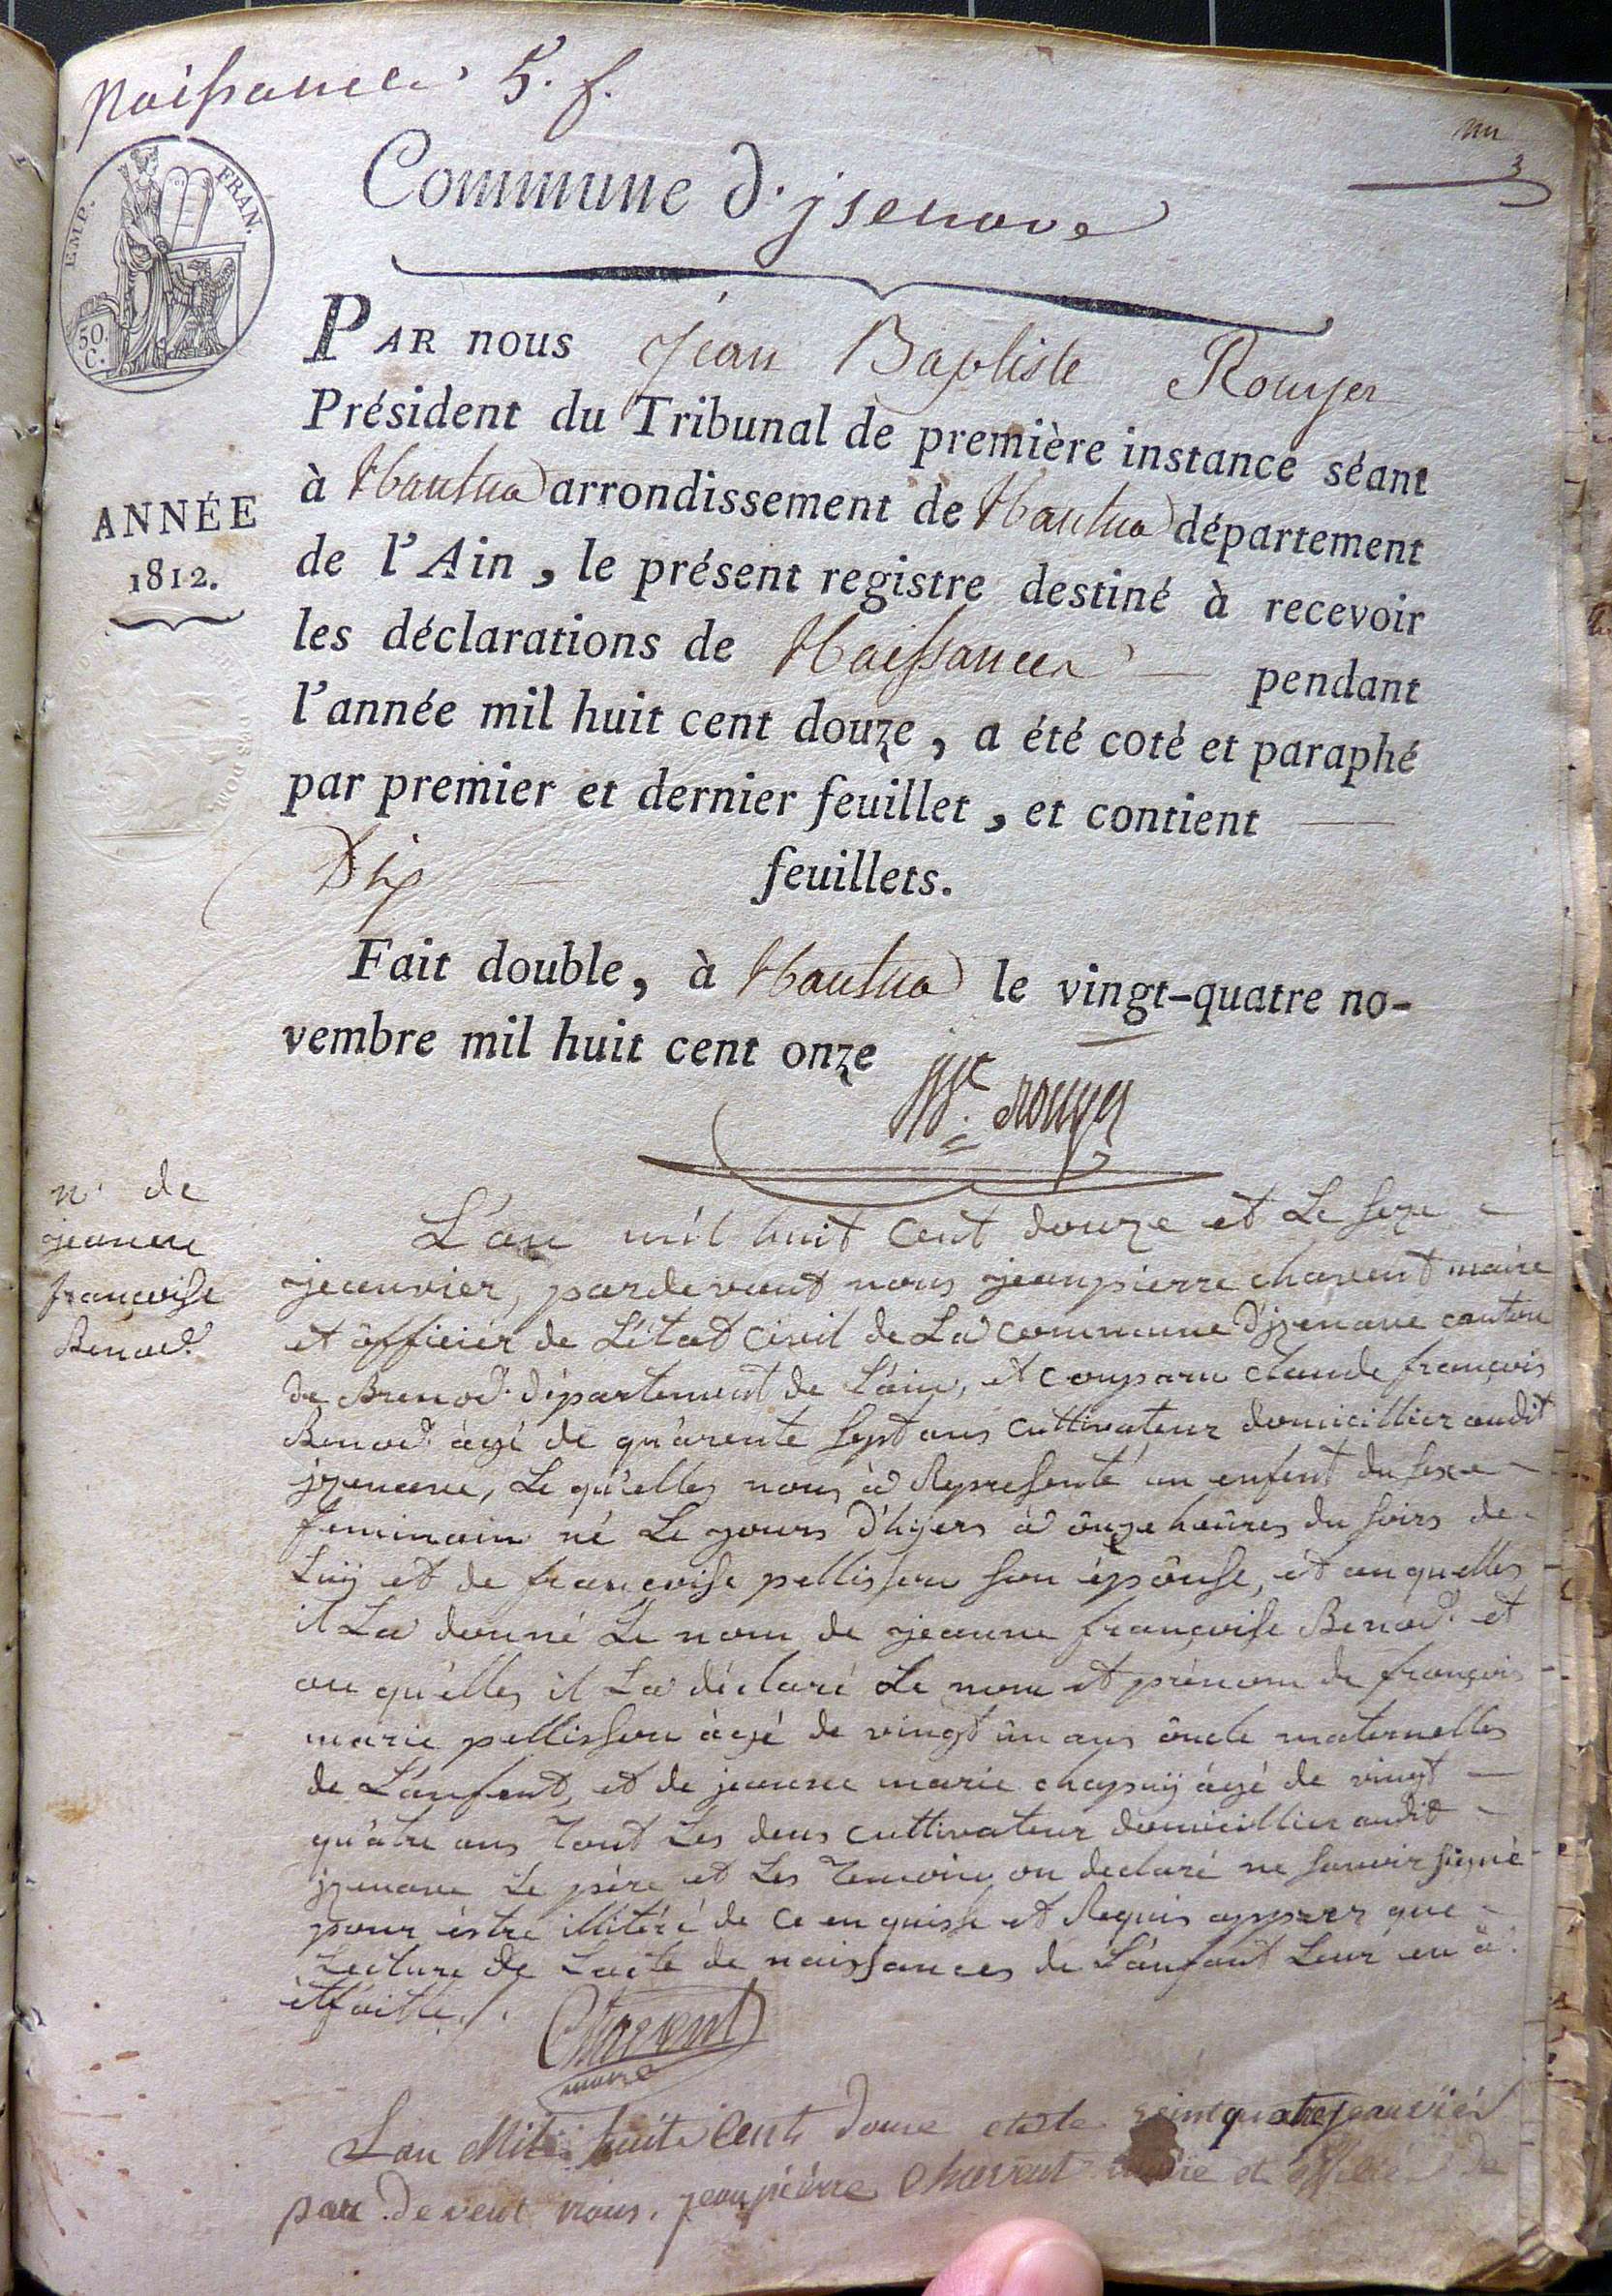 Naissances 5. f.
un
3
EMP. FRAN.
50 C.
Commune d'jsenave
PAR nous Jean Baptiste Rouyer
Président du Tribunal de première instance séant
à Nantua arrondissement de Nantua département
de l'Ain, le présent registre destiné à recevoir
les déclarations de Naissances pendant
l'année mil huit cent douze, a été coté et paraphé
par premier et dernier feuillet, et contient
Dix feuillets.
ANNÉE
1812.
Fait double, à Nantua le vingt-quatre no-
vembre mil huit cent onze
rouyer
n. de
jeanne
françoise
Benod
L'an mil huit Cent douze et Le seze
jeanvier, pardevant nous jeanpierre chavent maire
et ôfficier de L'état Civil de La commune d'jzenave canton
de Brenod département de l'ain, et Comparu claude françois
Benod âgé de quarente sept ans cultivateur domicillier audit
jzenave, Le qu'elles nous à Représenté un enfent du sexe
feminain né Le jours d'hijers à ônze heûres du soirs de
Luÿ et de françoise pellisson son épôuse, et au quelles
il La donné Le nom de jeanne françoise Benod et
au qu'elles il La déclaré Le nom et prénom de françois
marie pellisson âgé de vingt ûn ans ôncle maternelles
de L'anfent, et de jeanne marie chapuÿ âgé de vingt
qu'atre ans Tout Les deus cultivateur domicillier audit
jzenave Le père et Les Temoins on declaré ne savoir signé
pour êstre illitéré de Ce enquish et Requis apprer que
Lecture de L'acte de naissances de L'anfant Leur en à
êtté faitte./.
Charvent
maire
L'an Mil huit Cent Douze et le veintquatre jeanviér
par devent nous, jeanpiérre Charvent maire et officié de